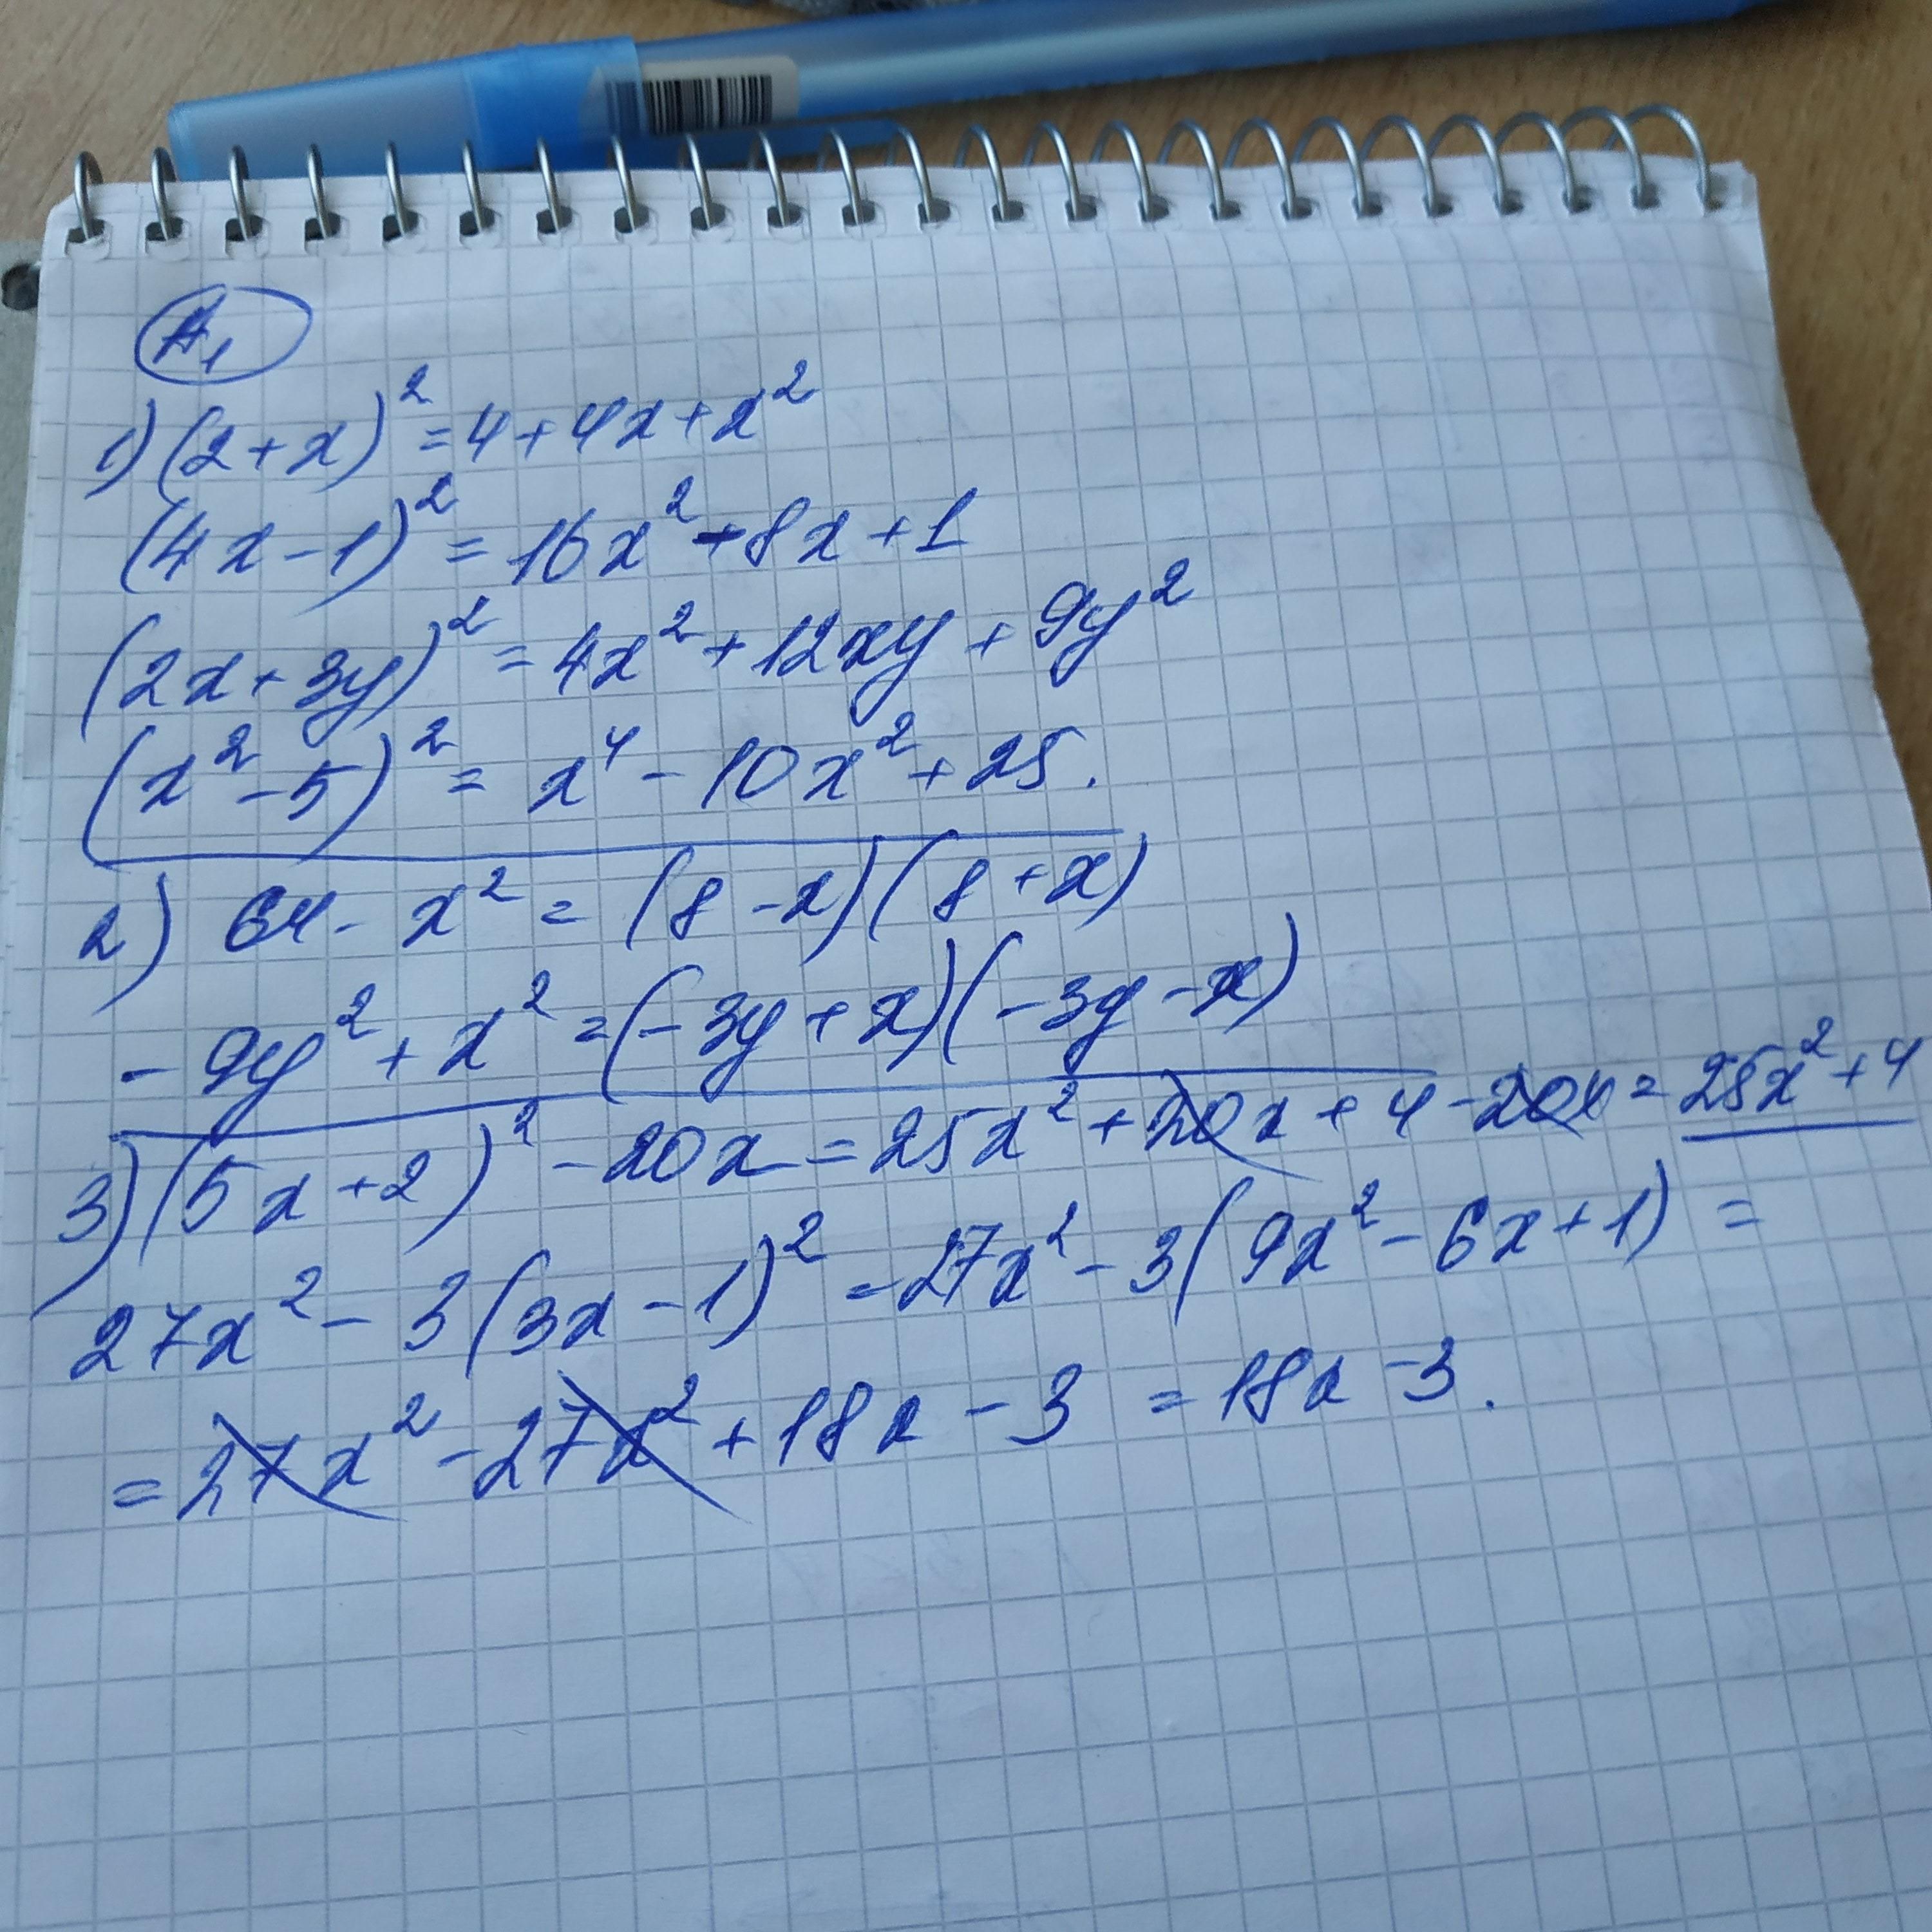 A1
1) (2+x)² = 4+4x+x²
(4x-1)² = 16x² - 8x + 1
(2x+3y)² = 4x² + 12xy + 9y²
(x² - 5)² = x⁴ - 10x² + 25.
2) 64 - x² = (8 - x)(8 + x)
- 9y² + x² = (- 3y + x)(- 3y - x)
3) (5x+2)² - 20x = 25x² + 20x + 4 - 20x = 25x² + 4
27x² - 3(3x - 1)² = 27x² - 3(9x² - 6x + 1) =
= 27x² - 27x² + 18x - 3 = 18x - 3.